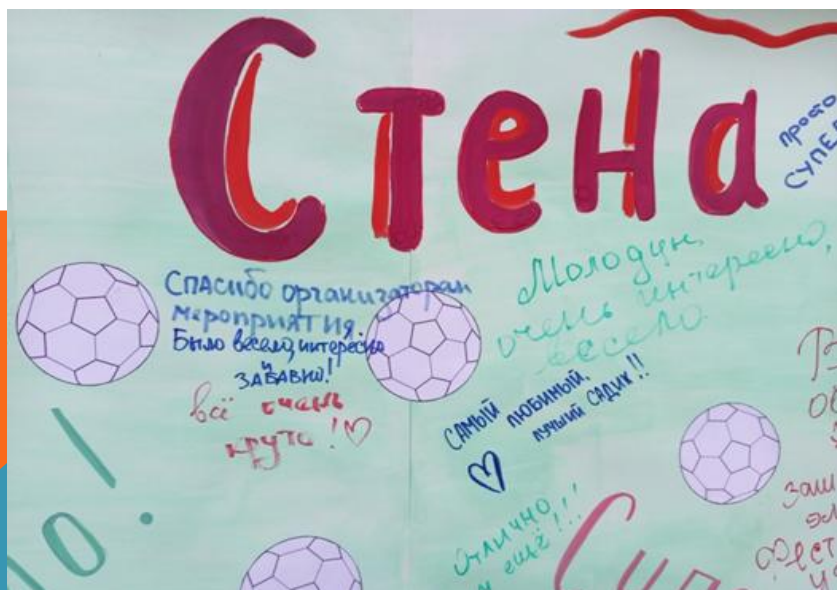 Стена
просто
СУПЕ
Спасибо организаторам
мероприятия.
Было весело, интересно
и
ЗАБАВНО!
всё очень
круто!♡
Молодцы,
очень интересно,
весело.
САМЫЙ ЛЮБИМЫЙ,
ЛУЧШИЙ САДИК!!
♡
Отлично
ещё!!!